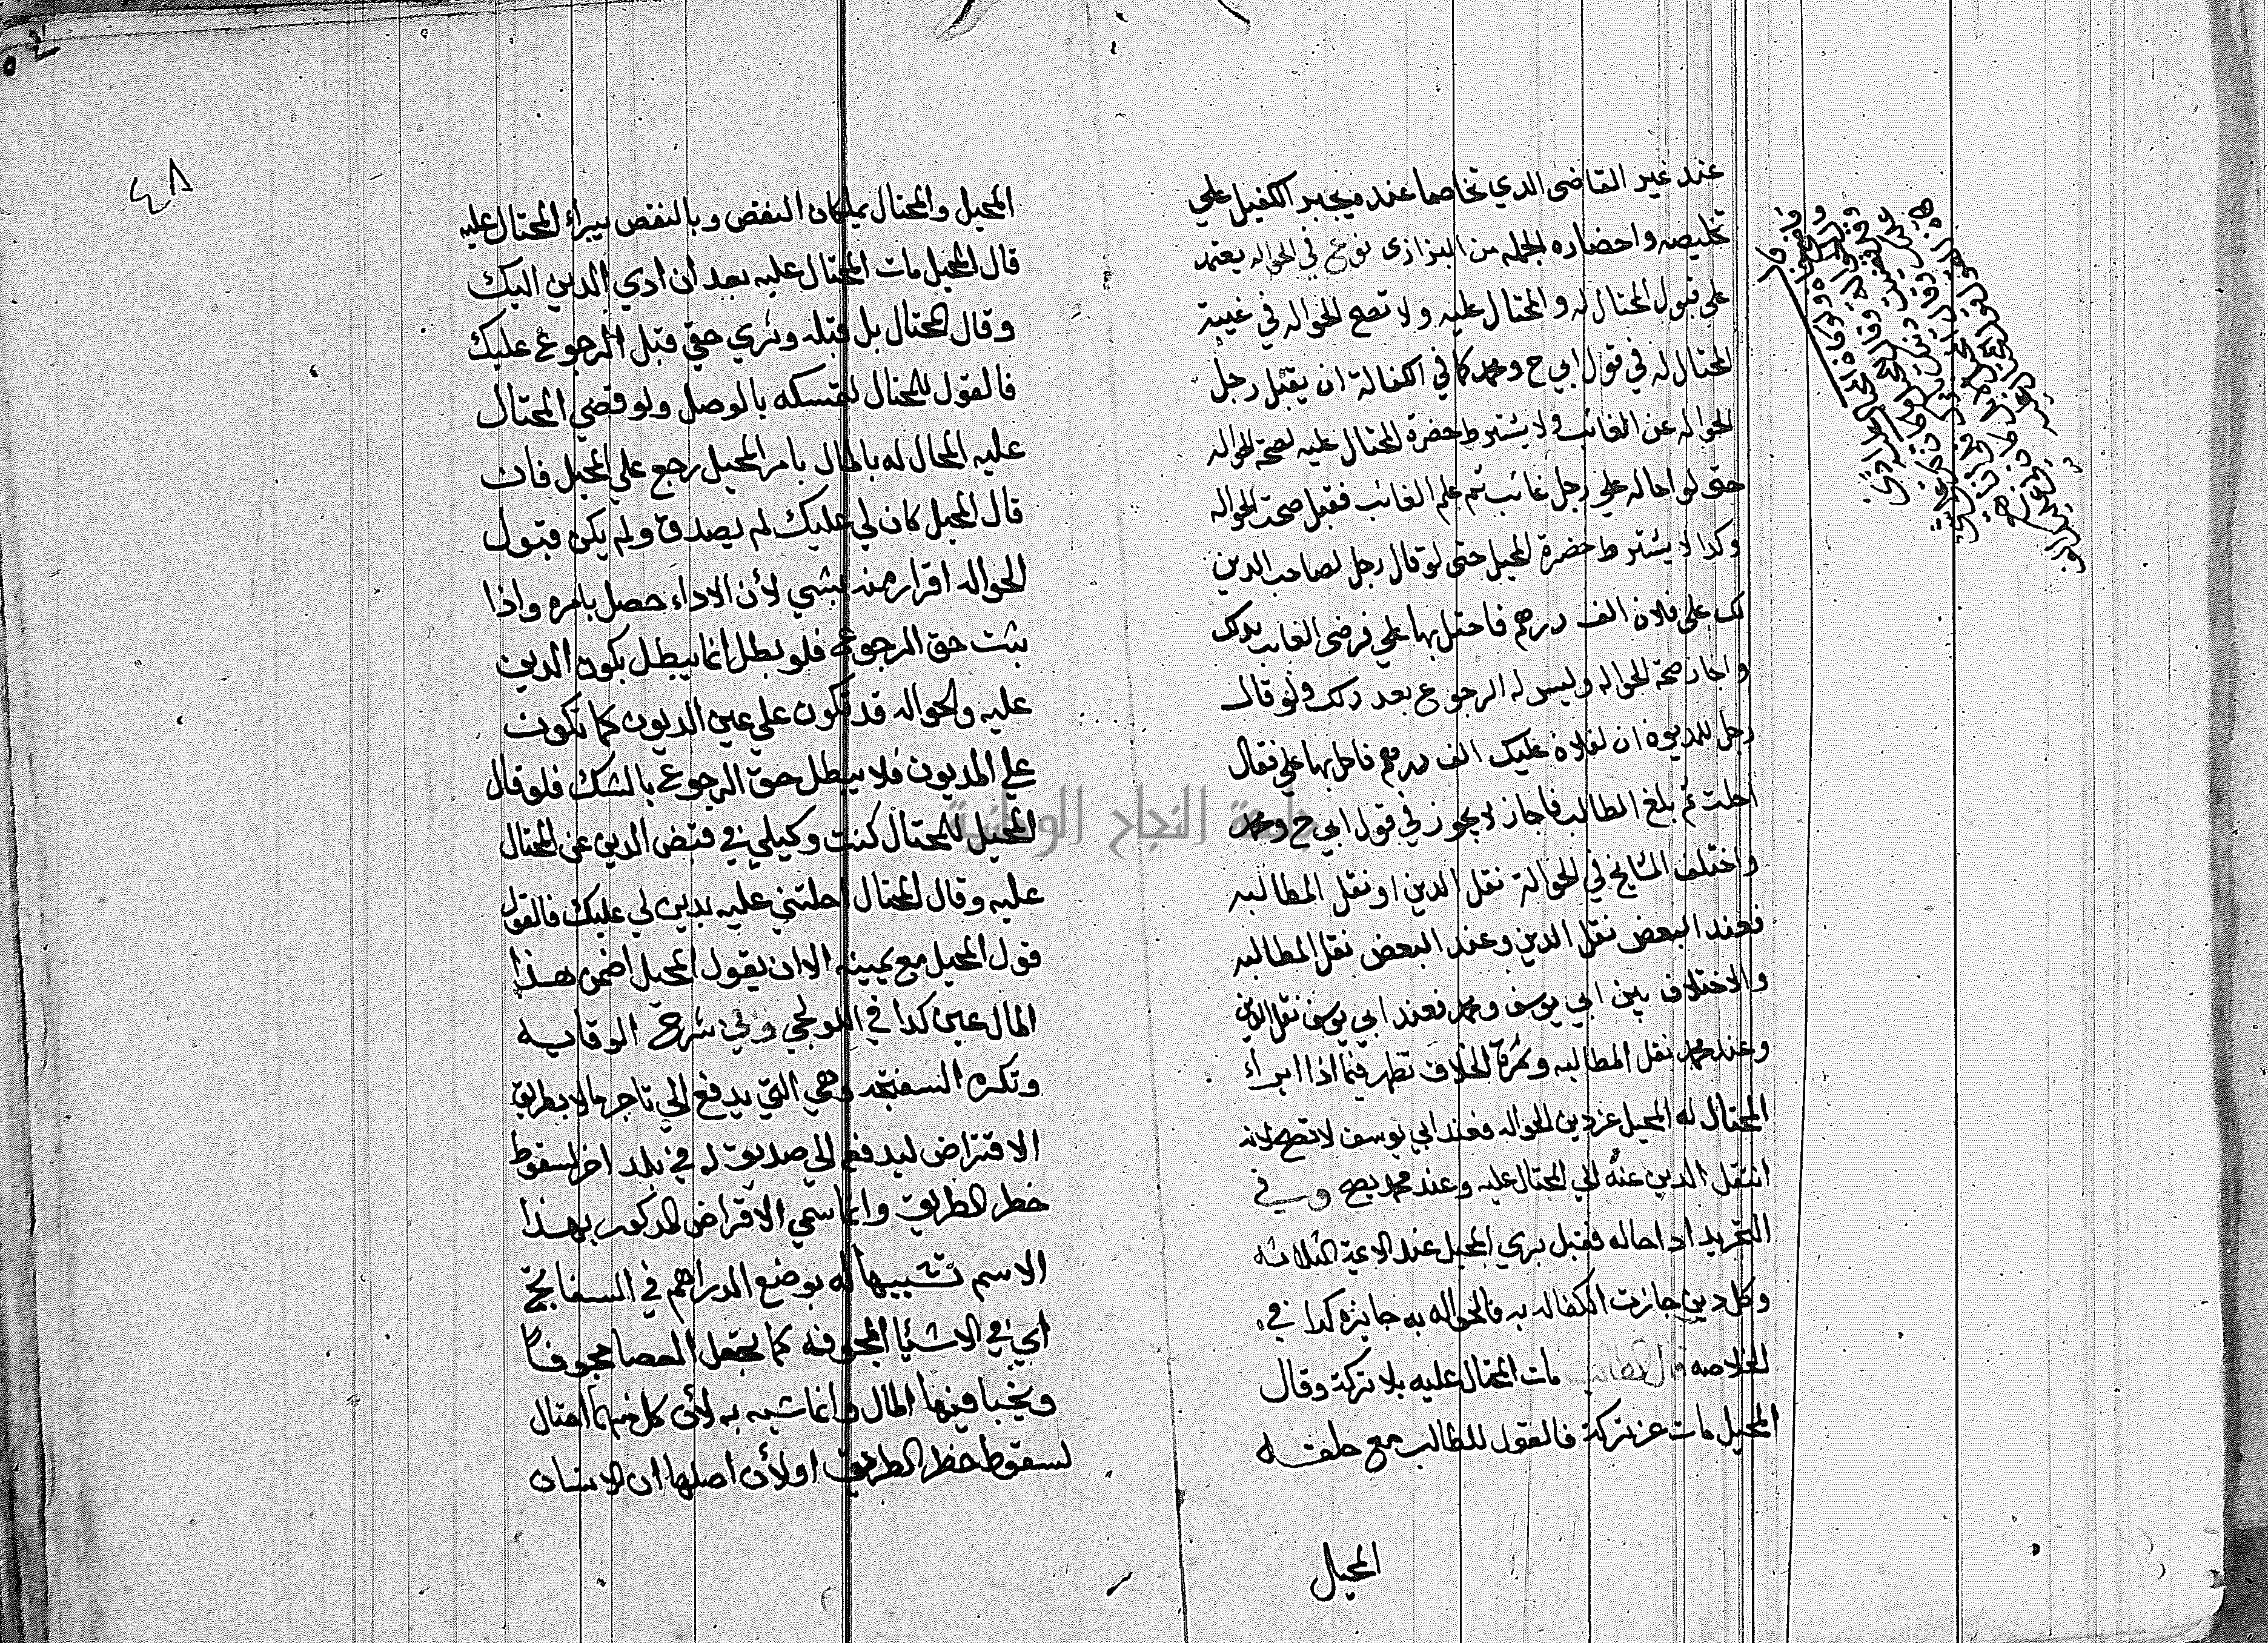 عند غير القاضى الدي تخاصما عنده يجبر الكفيل علي
تخليصه واحضاره الجمله من البزازى نوع في الحواله يعتمد
علي قبول المحتال له والمحتال عليه ولا تصح الحواله في غيبة
المحتال له في قول ابي ح ومحمد كما في الكفالة ان يقبل رجل
الحواله عن الغائب ولا يشترط حضرة المحتال عليه لصحة الحواله
حتى لو احاله علي رجل غائب ثم علم الغائب فقبل صحة الحواله
وكدا لا يشترط حضرة المحيل حتى لو قال رجل لصاحب الدين
لك على فلان الف درهم فاحتل بها علي فرضى الغائب بدلك
واجاز صحة الحواله وليس له الرجوع بعد دلك ولو قال
رجل للمديون ان لفلان عليك الف درهم فاحل بها علي فقال
احلت ثم بلغ الطالب فاجاز لا يجوز في قول ابي ح ومحمد
واختلف المشايخ في الحوالة نقل الدين او نقل المطالبه
فعند البعض نقل الدين وعند البعض نقل المطالبه
والاختلاف بين ابي يوسف ومحمد فعند ابي يوسف نقل الدين
وعند محمد نقل المطالبه وثمرة الخلاف تظهر فيما اذا ابراء
المحتال له المحيل عن دين الحواله فعند ابي يوسف لا تصح لانه
انتقل الدين عنه الي المحتال عليه وعند محمد يصح وفي
التجريد ادا احاله فقبل بري المحيل عند الائمة الثلاثه
وكل دين جازت الكفاله به فالحواله به جايزه كدا في
الخلاصه قال الطالب مات المحتال عليه بلا تركة وقال
المحيل مات عن تركة فالقول للطالب مع حلفه
المحيل
٤٨
المحيل والمحتال يملكان النقض وبالنقض يبراء المحتال عليه
قال المحيل مات المحتال عليه بعد ان ادي الدين اليك
وقال المحتال بل قبله وتوي حقي فبل الرجوع عليك
فالقول للمحتال لتمسكه بالوصل ولو قضي المحتال
عليه المحال له بالمال بامر المحيل رجع علي المحيل فان
قال المحيل كان لي عليك لم يصدق ولم يكن قبول
الحواله اقرار منه بشي لأن الاداء حصل بامره واذا
يثبت حق الرجوع فلو بطل انما يبطل بكون الدين
عليه والحواله قد تكون علي عين الديون كما تكون
علي المديون فلا يبطل حق الرجوع بالشك فلو قال
المحيل للمحتال كنت وكيلي في قبض الدين عن المحتال
عليه وقال المحتال احلتني عليه بدين لي عليك فالقول
قول المحيل مع يمينه الا ان يقول المحيل اضمن هذا
المال عين كدا في وفي شرح الوقايه
وتكره السفتجه وهي التي يدفع الي تاجر مالا بطريق
الاقتراض ليدفع الي صديق له في بلد اخر لسقوط
خطر الطريق وانما سمي الاقراض المدكور بهذا
الاسم تشبيها له بوضع الدراهم في السفاتج
اي في الاشيا المجوفه كما يجعل العصا مجوفا
ويخبا فيها المال وانما شبه به لأن كل منهما احتال
لسقوط خطر الطريق او لأن اصلها ان الانسان
جامعة النجاح الوطنية